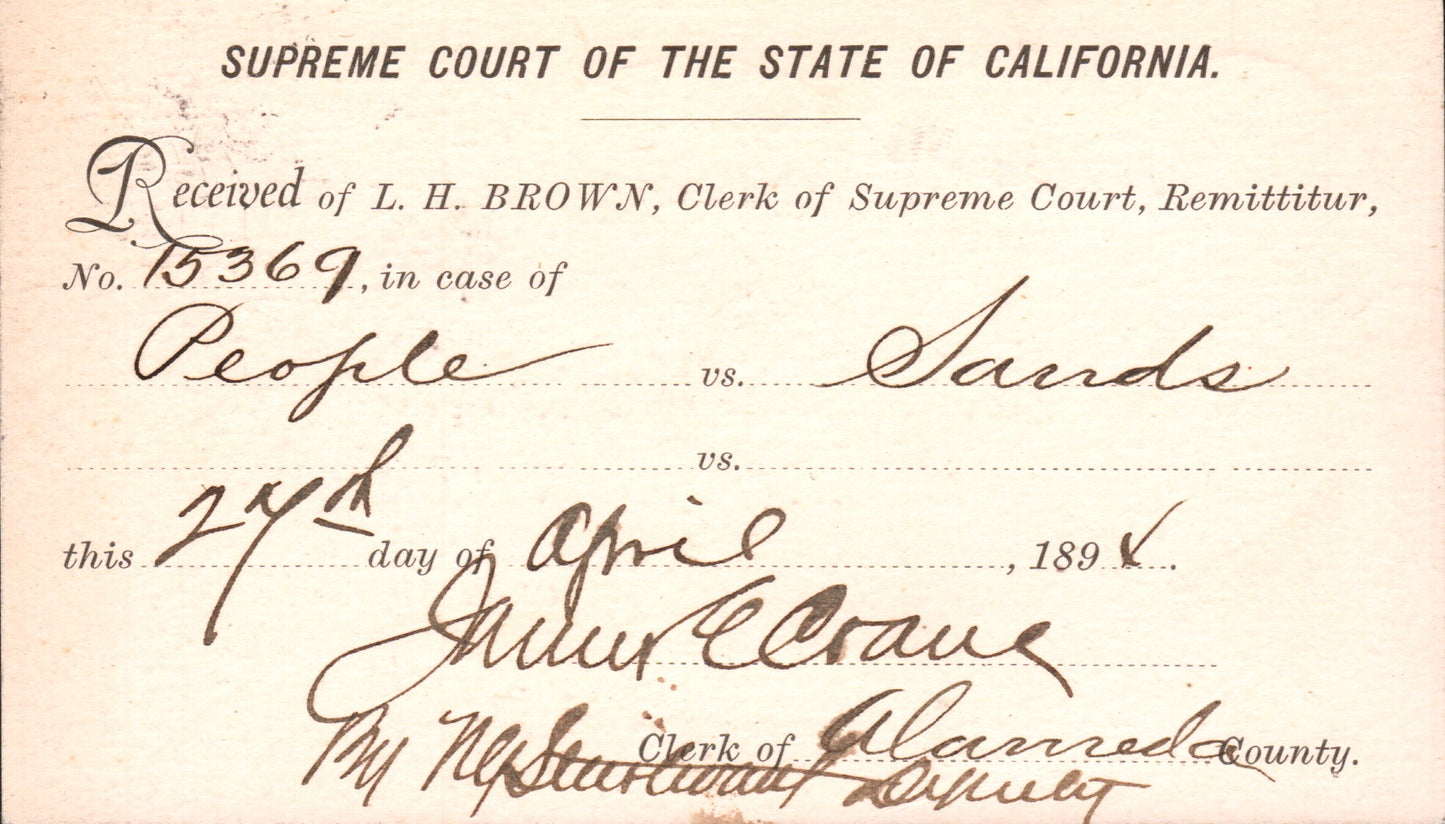 SUPREME COURT OF THE STATE OF CALIFORNIA.
Received of L. H. BROWN, Clerk of Supreme Court, Remittitur,
No. 15369, in case of
People vs. Sands
vs.
this 27th day of April, 1894.
James E Crane
Clerk of Alameda County.
By Deputy